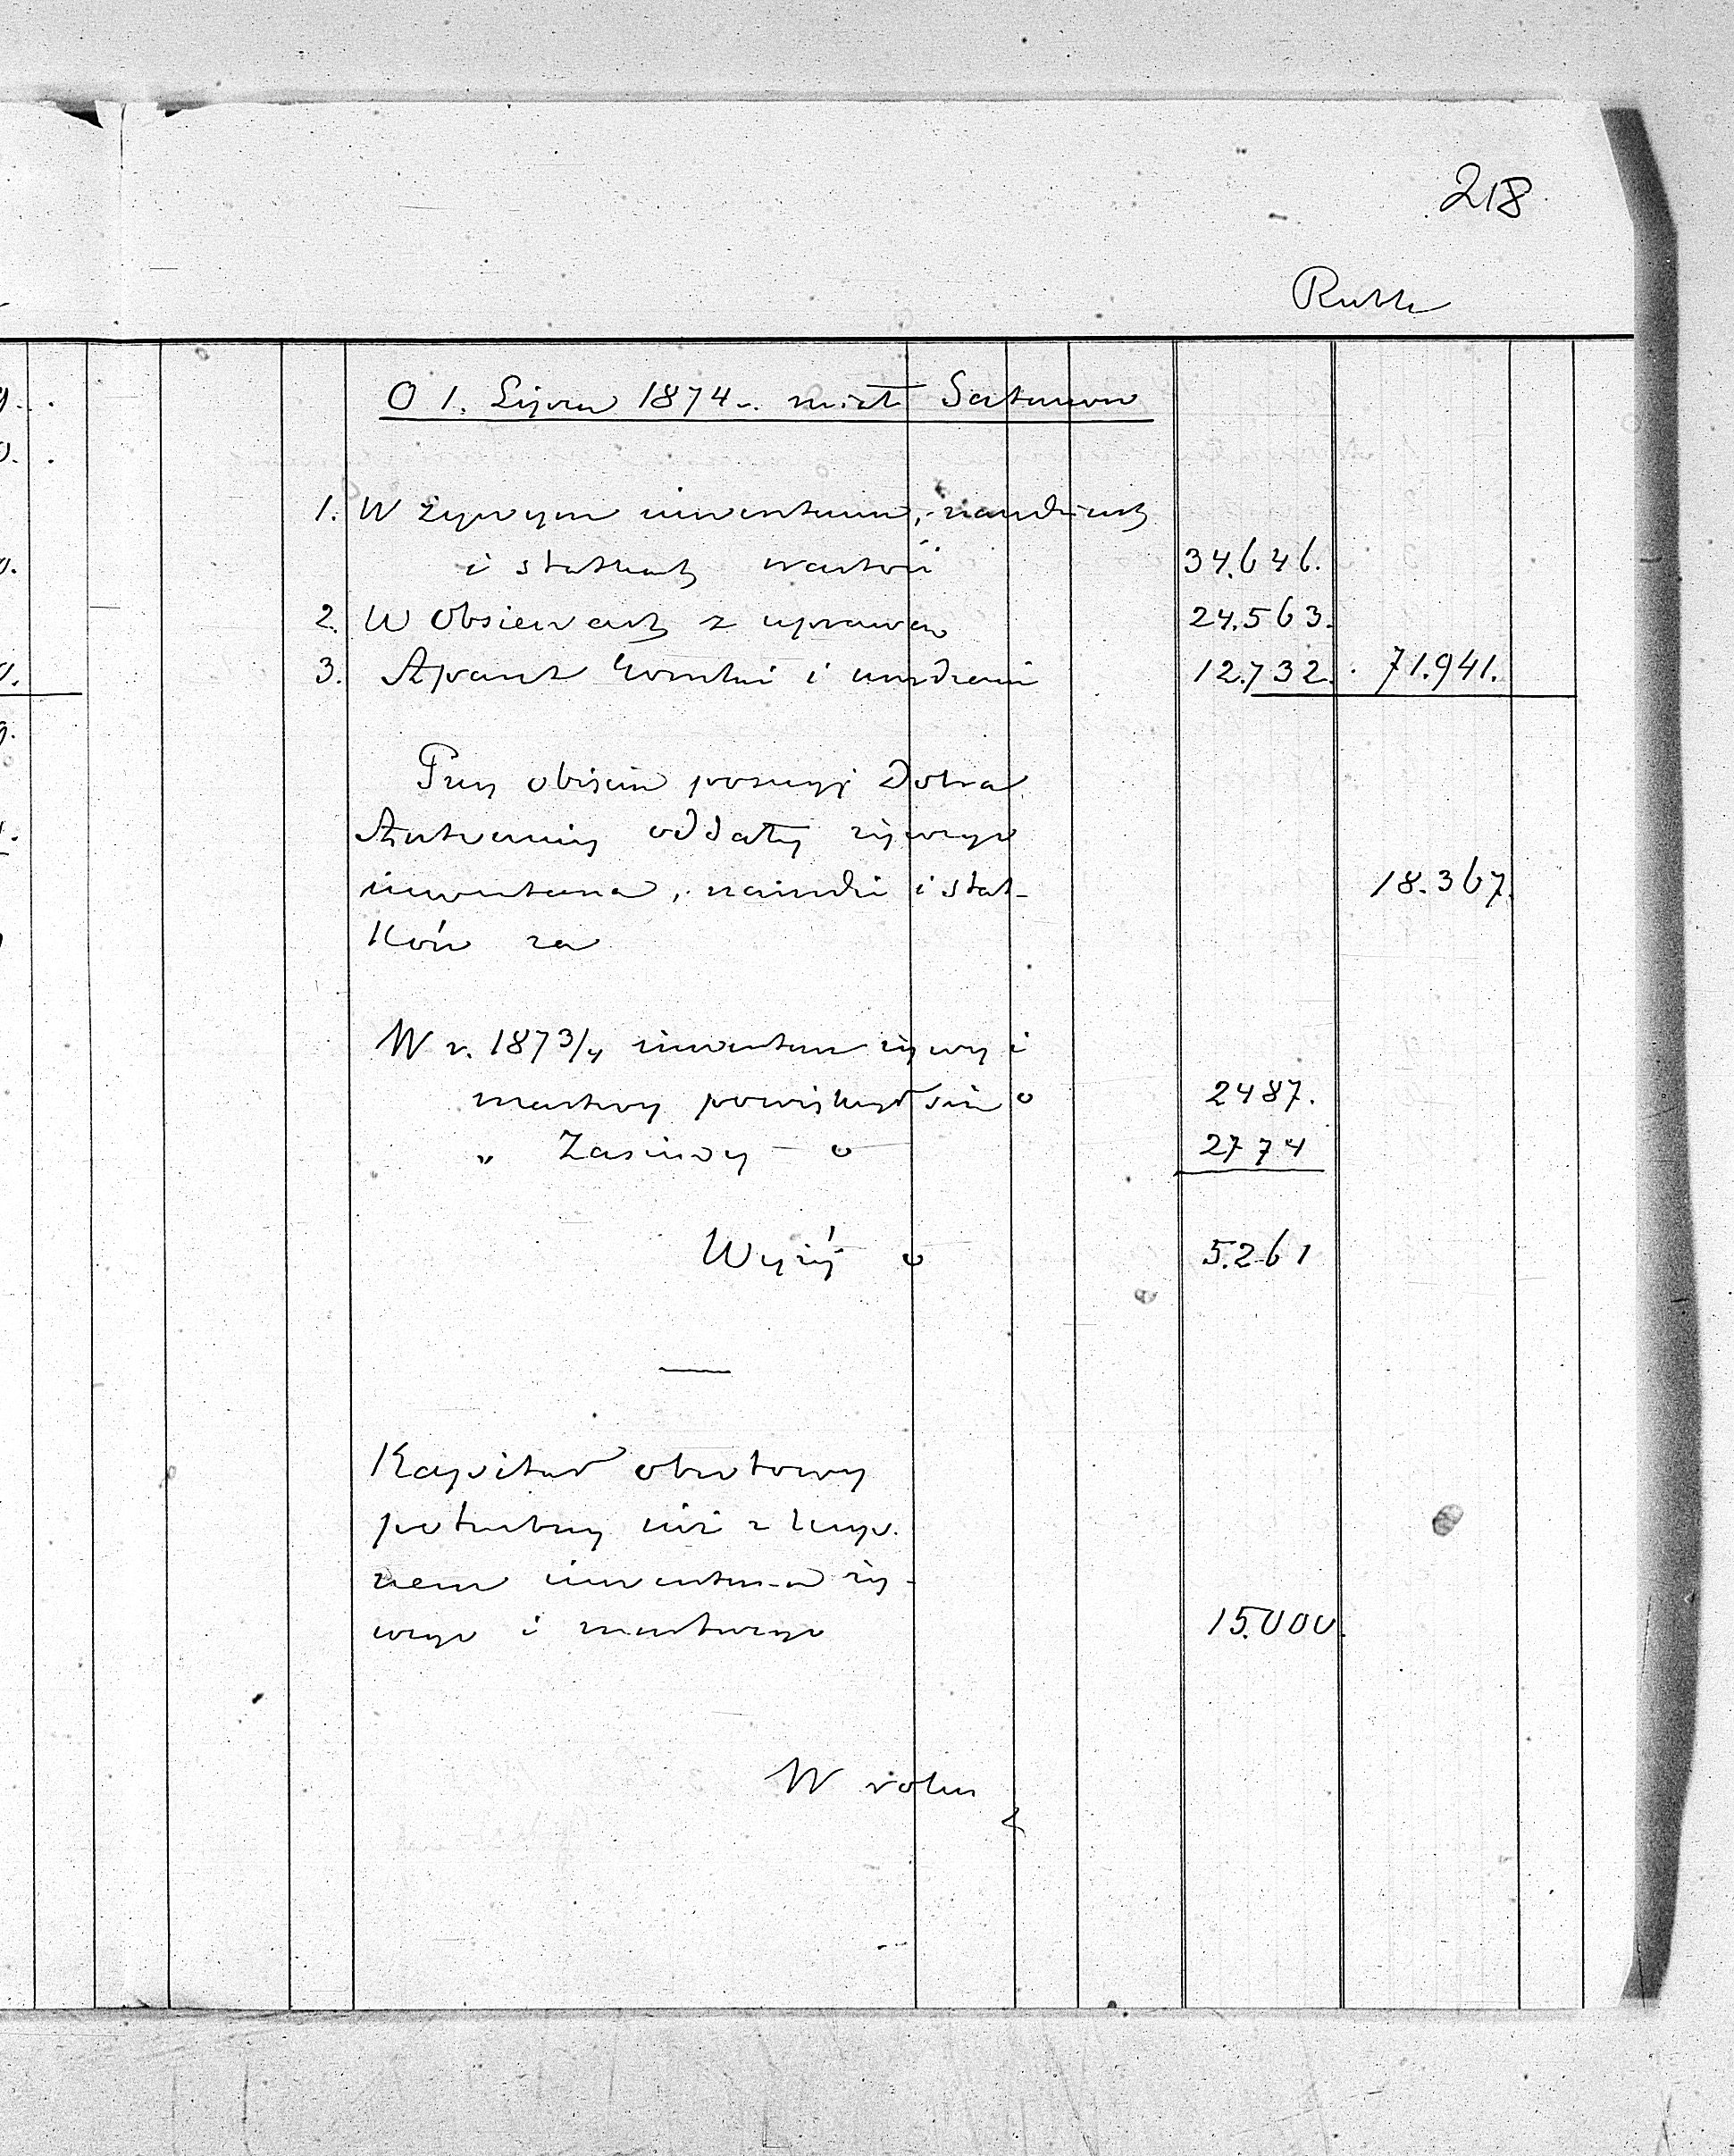 218
Ruble
O 1. Lipca 1874 r. miał Satanow
1. W żywym inwentarzu, narzędziach
i statkach wartości 34.646.
2. W Obsiewach z uprawą 24.563.
3. Aparat Gorzelni i urządzenie 12.732. 71.941.
Przy objęciu posesyj Dobra
oddały żywego
inwentarza, narzędzi i stat-
ków za 18.367.
W r. 1873/4 inwentarz żywy i
martwy powiększył się o 2487.
" Zasiewy o 2774
Wyżej o 5.261
Kapitał obrotowy
potrzebny już z kup-
nem inwentarza ży-
wego i martwego 15.000.
W roku